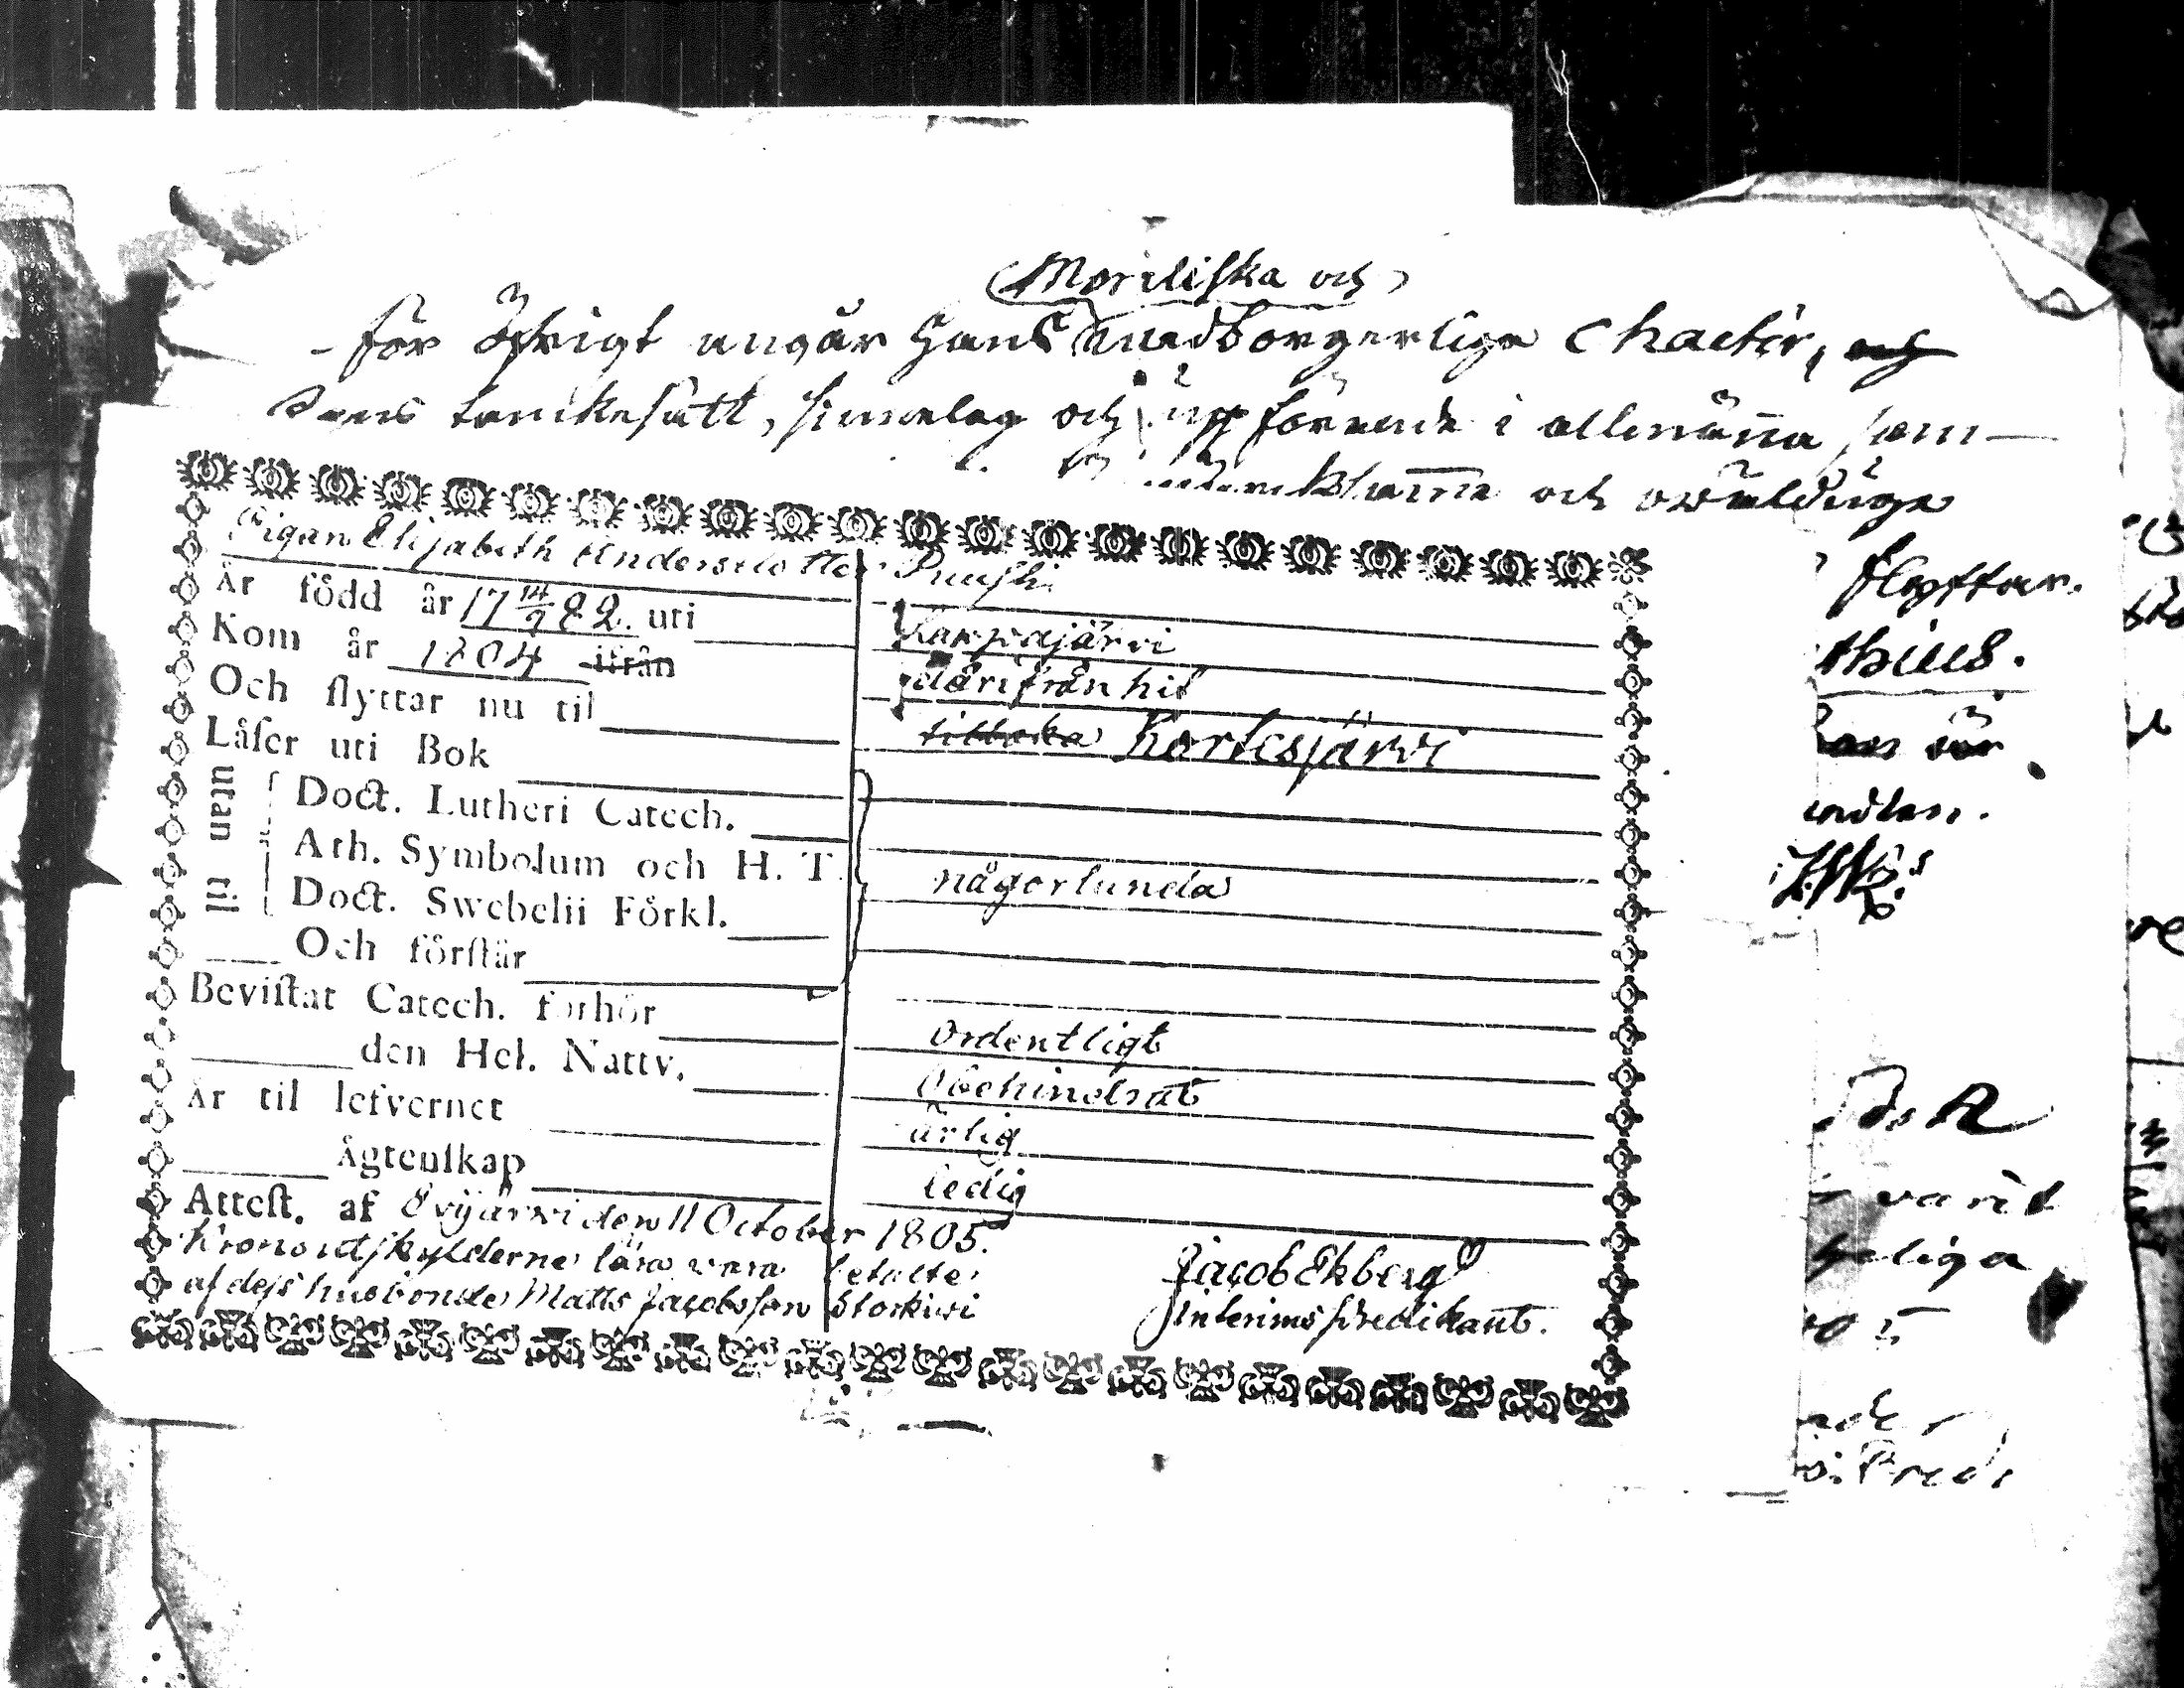 Moraliska och
för öfrigt angår Hans medborgerliga Chactér, och
dess tankesätt, sinnelag och uppförande i allmänna som
och oväldige
flyttar.
thius.
Pigan Elisabeth Andersdotter Puushi
År född år 17 14/9 82. uti Karvajärvi
Kom år 1804 ifrån därifrån hit
Och flyttar nu til tilbaka Kortesjärvi
Låser uti Bok
utan til
Doct. Lutheri Catech.
Ath. Symbolum och H. T.
Doct. Swebelii Förkl. någorlunda
Och förstår
Bevistat Catech. förhör ordentligt
den Hel. Nattv. Obehindrat
År til lefvernet ärlig
Ågtenskap ledig
Attest. af Evijärvi den 11 October 1805.
Kronoutskylderne lära vara betalte
af dess husbonde Matts Jacobsson Storkivi
Jacob Ekberg
Interims predikant.
varit
geliga
Pred.